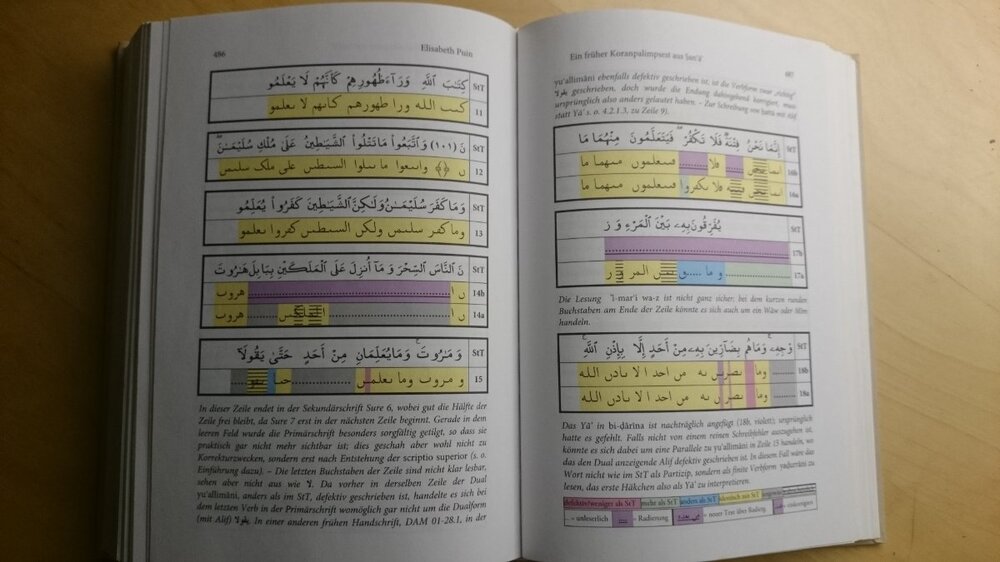 486
Elisabeth Puin
كِتَٰبَ ٱللَّهِ وَرَآءَظُهُورِهِمْ كَأَنَّهُمْ لَا يَعْلَمُو StT
كىب الله ورا طهورهم كانهم لا ىعلمو 11
نَ (١٠١) وَٱتَّبَعُوا۟ مَاتَتْلُوا۟ ٱلشَّيَٰطِينُ عَلَىٰ مُلْكِ سُلَيْمَٰنَ StT
واىىعوا ما ىىلوا السىطىں على ملك سلىمں 12
وَمَاكَفَرَ سُلَيْمَٰنُ وَلَٰكِنَّ ٱلشَّيَٰطِينَ كَفَرُوا۟ يُعَلِّمُو StT
وما كفر سلىمں ولكں السىطىں كفروا ىعلمو 13
نَ ٱلنَّاسَ ٱلسِّحْرَ وَمَآ أُنزِلَ عَلَى ٱلْمَلَكَيْنِ بِبَابِلَ هَٰرُوتَ StT
ں ا هروت 14b
ں ا هروت 14a
وَ مَٰرُوتَ وَمَايُعَلِّمَانِ مِنْ أَحَدٍ حَتَّىٰ يَقُولَآ StT
و مروت وما ىعلمں 15
In dieser Zeile endet in der Sekundärschrift Sure 6, wobei gut die Hälfte der
Zeile frei bleibt, da Sure 7 erst in der nächsten Zeile beginnt. Gerade in dem
leeren Feld wurde die Primärschrift besonders sorgfältig getilgt, so dass sie
praktisch gar nicht mehr sichtbar ist; dies geschah aber wohl nicht zu
Korrekturzwecken, sondern erst nach Entstehung der scriptio superior (s. o.
Einführung dazu). – Die letzten Buchstaben der Zeile sind nicht klar lesbar,
sehen aber nicht aus wie لا. Da vorher in derselben Zeile der Dual
yuʿallimāni, anders als im StT, defektiv geschrieben ist, handelte es sich bei
dem letzten Verb in der Primärschrift womöglich gar nicht um die Dualform
(mit Alif) يقولا. In einer anderen frühen Handschrift, DAM 01-28.1, in der
Ein früher Koranpalimpsest aus Ṣanʿāʾ
487
yuʿallimāni ebenfalls defektiv geschrieben ist, ist die Verbform zwar „richtig“
يقولا geschrieben, doch wurde die Endung dahingehend korrigiert, muss
ursprünglich also anders gelautet haben. – Zur Schreibung von ḥattā mit Alif
statt Yāʾ s. o. 4.2.1.3, zu Zeile 9).
إِنَّمَا نَحْنُ فِتْنَةٌ فَلَا تَكْفُرْ فَيَتَعَلَّمُونَ مِنْهُمَا مَا StT
فلا فىىعلموں مىهما ما 16b
فلا ىكفروا فىىعلموں مىهما ما 16a
يُفَرِّقُونَ بِهِۦ بَيْنَ ٱلْمَرْءِ وَ زَ StT
17b
و ما المر و ر 17a
Die Lesung ʾl-marʾi wa-z ist nicht ganz sicher; bei dem kurzen runden
Buchstaben am Ende der Zeile könnte es sich auch um ein Wāw oder Mīm
handeln.
وْجِهِۦ وَمَاهُم بِضَآرِّينَ بِهِۦ مِنْ أَحَدٍ إِلَّا بِإِذْنِ ٱللَّهِ StT
وما ىه مں احد الا ىادں الله 18b
وما ىه مں احد الا ىادں الله 18a
Das Yāʾ in bi-ḍārīna ist nachträglich angefügt (18b, violett); ursprünglich
hatte es gefehlt. Falls nicht von einem reinen Schreibfehler auszugehen ist,
könnte es sich dabei um eine Parallele zu yuʿallimāni in Zeile 15 handeln, wo
das den Dual anzeigende Alif defektiv geschrieben ist. In diesem Fall wäre das
Wort nicht wie im StT als Partizip, sondern als finite Verbform yaḍurrāni zu
lesen, das erste Häkchen also als Yāʾ zu interpretieren.
defektiv/weniger als StT mehr als StT anders als StT identisch mit StT
... = unleserlich = Radierung = neuer Text über Radierg.